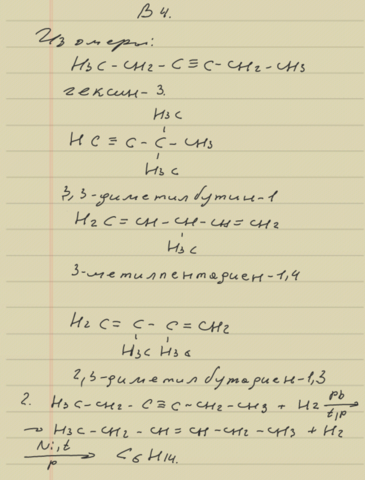 В 4.
Изомеры:
H3C - CH2 - C ≡ C - CH2 - CH3
гексин - 3.
H3C
HC ≡ C - C - CH3
H3C
3,3-диметилбутин-1
H2C = CH - CH - CH = CH2
H3C
3-метилпентадиен-1,4
H2C = C - C = CH2
H3C H3C
2,3-диметилбутадиен-1,3
2. H3C-CH2-C≡C-CH2-CH3 + H2 Pb t,p →
→ H3C-CH2-CH=CH-CH2-CH3 + H2
Ni,t p → C6H14.